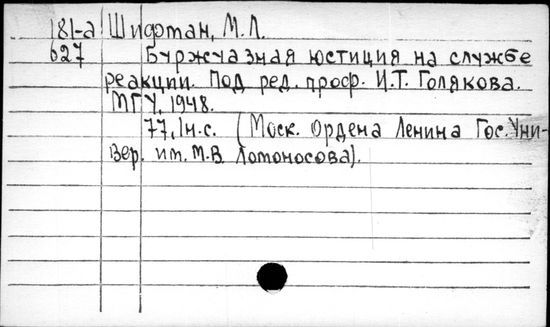 181-а Шифман, М.Л.
627 Буржуазная юстиция на службе
реакции. Под ред. проф. И.Т. Голякова.
МГУ, 1948.
77,1н.с. (Моск. Ордена Ленина Гос. Уни-
вер. им. М.В. Ломоносова).